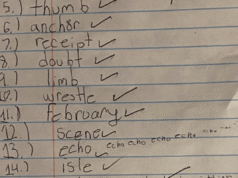 5.) thumb ✓
6.) anchor ✓
7.) receipt ✓
8.) doubt ✓
9.) limb ✓
10.) wrestle ✓
11.) february ✓
12.) scene ✓
13.) echo, echo echo echo echo
14.) isle ✓